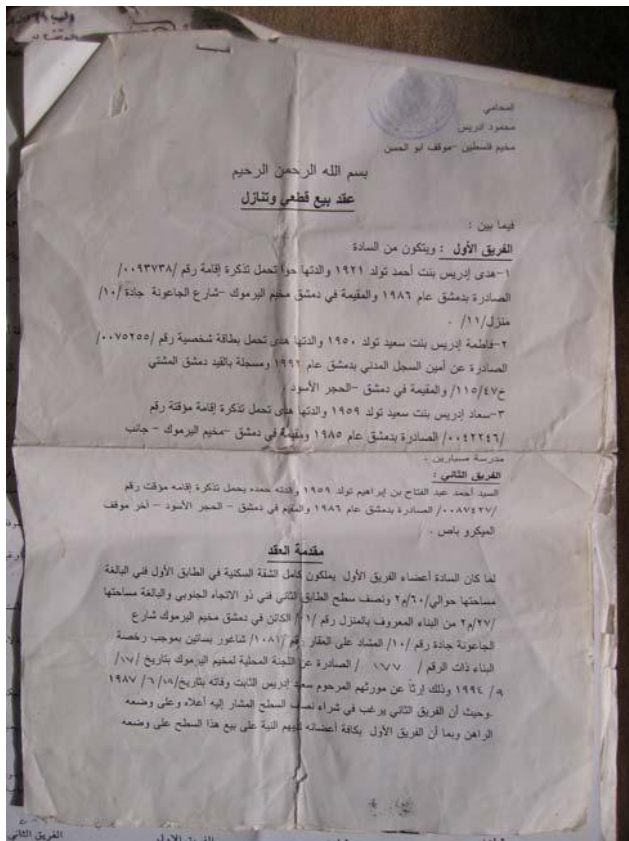 المحامي
محمود ادريس
مخيم فلسطين -موقف ابو الحسن
بسم الله الرحمن الرحيم
عقد بيع قطعي وتنازل
فيما بين :
الفريق الأول : ويتكون من السادة
١-هدى إدريس بنت أحمد تولد ١٩٢١ والدتها حوا تحمل تذكرة إقامة رقم /٠٠٩٣٧٣٨/
الصادرة بدمشق عام ١٩٨٦ والمقيمة في دمشق مخيم اليرموك -شارع الجاعونة جادة /١٠/
منزل /١١/ .
٢-فاطمة إدريس بنت سعيد تولد ١٩٥٠ والدتها هدى تحمل بطاقة شخصية رقم /٠٠٧٥٢٥٥/
الصادرة عن أمين السجل المدني بدمشق عام ١٩٩٢ ومسجلة بالقيد دمشق المشتي
خ١١٥/٤٧/ والمقيمة في دمشق -الحجر الأسود
٣-سعاد إدريس بنت سعيد تولد ١٩٥٩ والدتها هدى تحمل تذكرة إقامة مؤقتة رقم
/٠٠٤٢٢٤٦/ الصادرة بدمشق عام ١٩٨٥ ومقيمة في دمشق -مخيم اليرموك - جانب
مدرسة صبارين .
الفريق الثاني :
السيد أحمد عبد الفتاح بن إبراهيم تولد ١٩٥٩ والدته حمده يحمل تذكرة إقامه مؤقت رقم
/٠٠٨٧٤٢٧/ الصادرة بدمشق عام ١٩٨٦ والمقيم في دمشق - الحجر الأسود - آخر موقف
الميكرو باص .
مقدمة العقد
لما كان السادة أعضاء الفريق الأول يملكون كامل الشقة السكنية في الطابق الأول فني البالغة
مساحتها حوالي/٦٠/م٢ ونصف سطح الطابق الثاني فني ذو الاتجاه الجنوبي والبالغة مساحتها
/٢٧/م٢ من البناء المعروف بالمنزل رقم الكائن في دمشق مخيم اليرموك شارع
الجاعونة جادة رقم /١٠/ المشاد على العقار رقم /١٠٨١/ شاغور بساتين بموجب رخصة
البناء ذات الرقم / ١٧٧ / الصادرة عن اللجنة المحلية لمخيم اليرموك بتاريخ /١٧/
٩/ ١٩٩٤ وذلك إرثاً عن مورثهم المرحوم سعيد إدريس الثابت وفاته بتاريخ/١٩/ ٦/ ١٩٨٧
.وحيث أن الفريق الثاني يرغب في شراء نصف السطح المشار إليه أعلاه وعلى وضعه
الراهن وبما أن الفريق الأول بكافة أعضائه لديهم النية على بيع هذا السطح على وضعه
الفريق الثاني